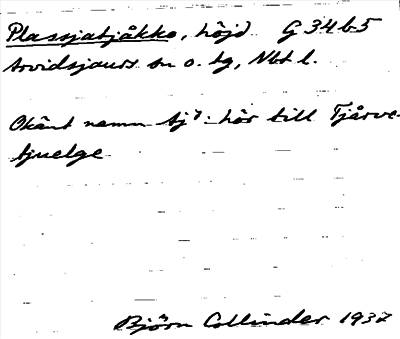 Plassjatjåkko, höjd G 34 b 5
Arvidsjaurs sn o. tg, Nbt l.
Okänt namn tj?: hör till Tjårve-
tjuelge
Björn Collinder 1937